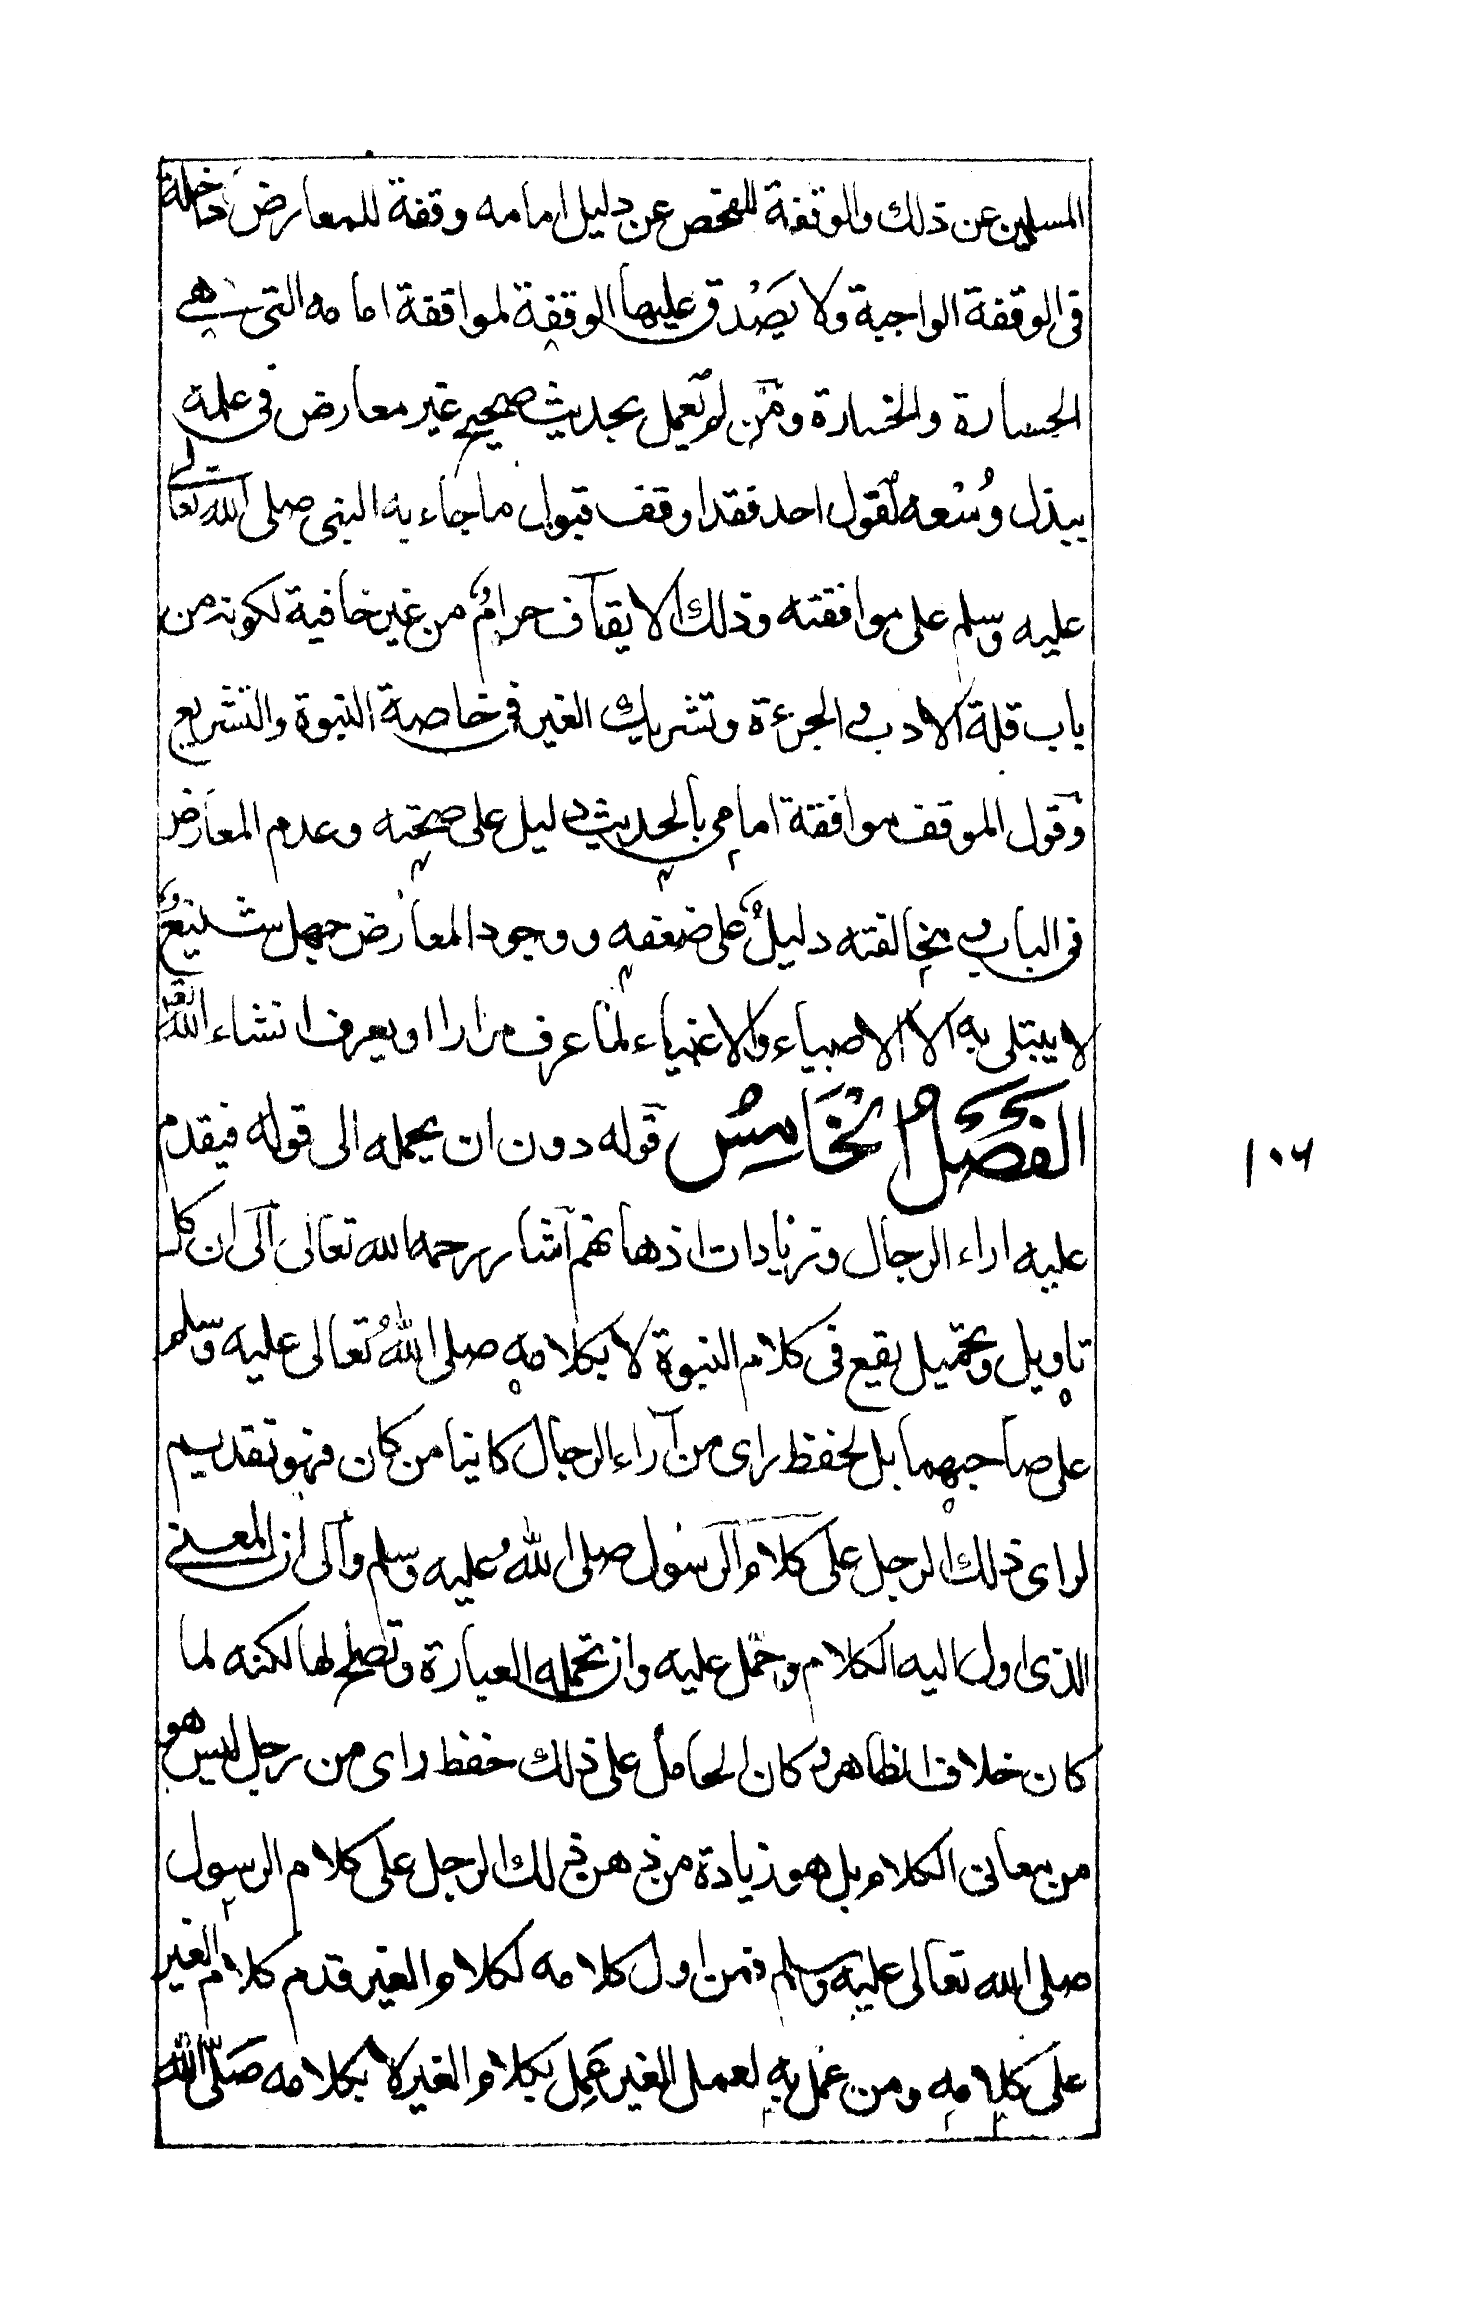 المسلمين عن ذلك والوقفة للتفحص عن دليل امامه وقفة للمعارض داخلة
فى الوقفة الواجبة ولا يَصْدق عليها الوقفة لموافقة امامه التى هى
الجسارة والخسارة ومَن لم يعمل بحديث صحيح غير معارض فى علمه
ببذل وُسْعه لقول احد فقد اوقف قبول ما جاء به النبى صلى الله تعالى
عليه وسلم على موافقته وذلك الايقاف حرامٌ من غير خافية لكونه من
باب قلة الادب والجرءة وتشريك الغير فى خاصة النبوة والتشريع
وقول الموقف موافقة امامى بالحديث دليل على صحته وعدم المعارض
فى الباب ومخالفته دليلٌ على ضعفه ووجود المعارض جهل شنيعٌ
لا يبتلى به الا الاصبياء والاغنياء لما عرف مرارا او يعرف انشاء الله تعالى
الفَصْلُ الْخَامِسُ قوله دون ان يحمله الى قوله فيقدم
عليه اراء الرجال وزيادات اذهانهم اشار رحمه الله تعالى الى ان كل
تاويل وتحميل يقع فى كلام النبوة لا بكلامه صلى اللهُ تعالى عليه وسلم
على صاحبهما بل لحفظ راى من آراء الرجال كائنا من كان فهو تقديم
لراى ذلك الرجل على كلام الرسول صلى اللهُ عليه وسلم والى ان المعنى
الذى اول اليه الكلام وحمل عليه وان تحمله العبارة وتصلح لها لكنه لما
كان خلاف الظاهر وكان الحامل على ذلك حفظ راى من رجل ليس هو
من معانى الكلام بل هو زيادة من ذهن ذلك الرجل على كلام الرسول
صلى الله تعالى عليه وسلم فمن اول كلامه لكلام الغير قدم كلام الغير
على كلامه ومن عمل به لعمل الغير عَمِل بكلام الغير لا بكلامه صَلّى الله
١٠٦